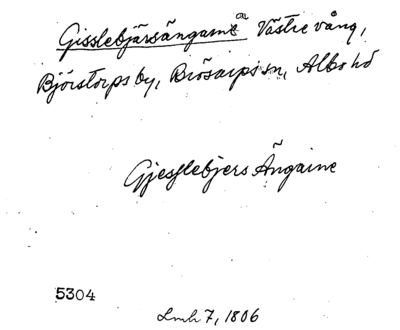 Gisslebjärsängarne Västre vång,
Björstorps by, Brösarps sn, Albo hd
Gjesslebjers Ängarne
5304
Lmh 7, 1806